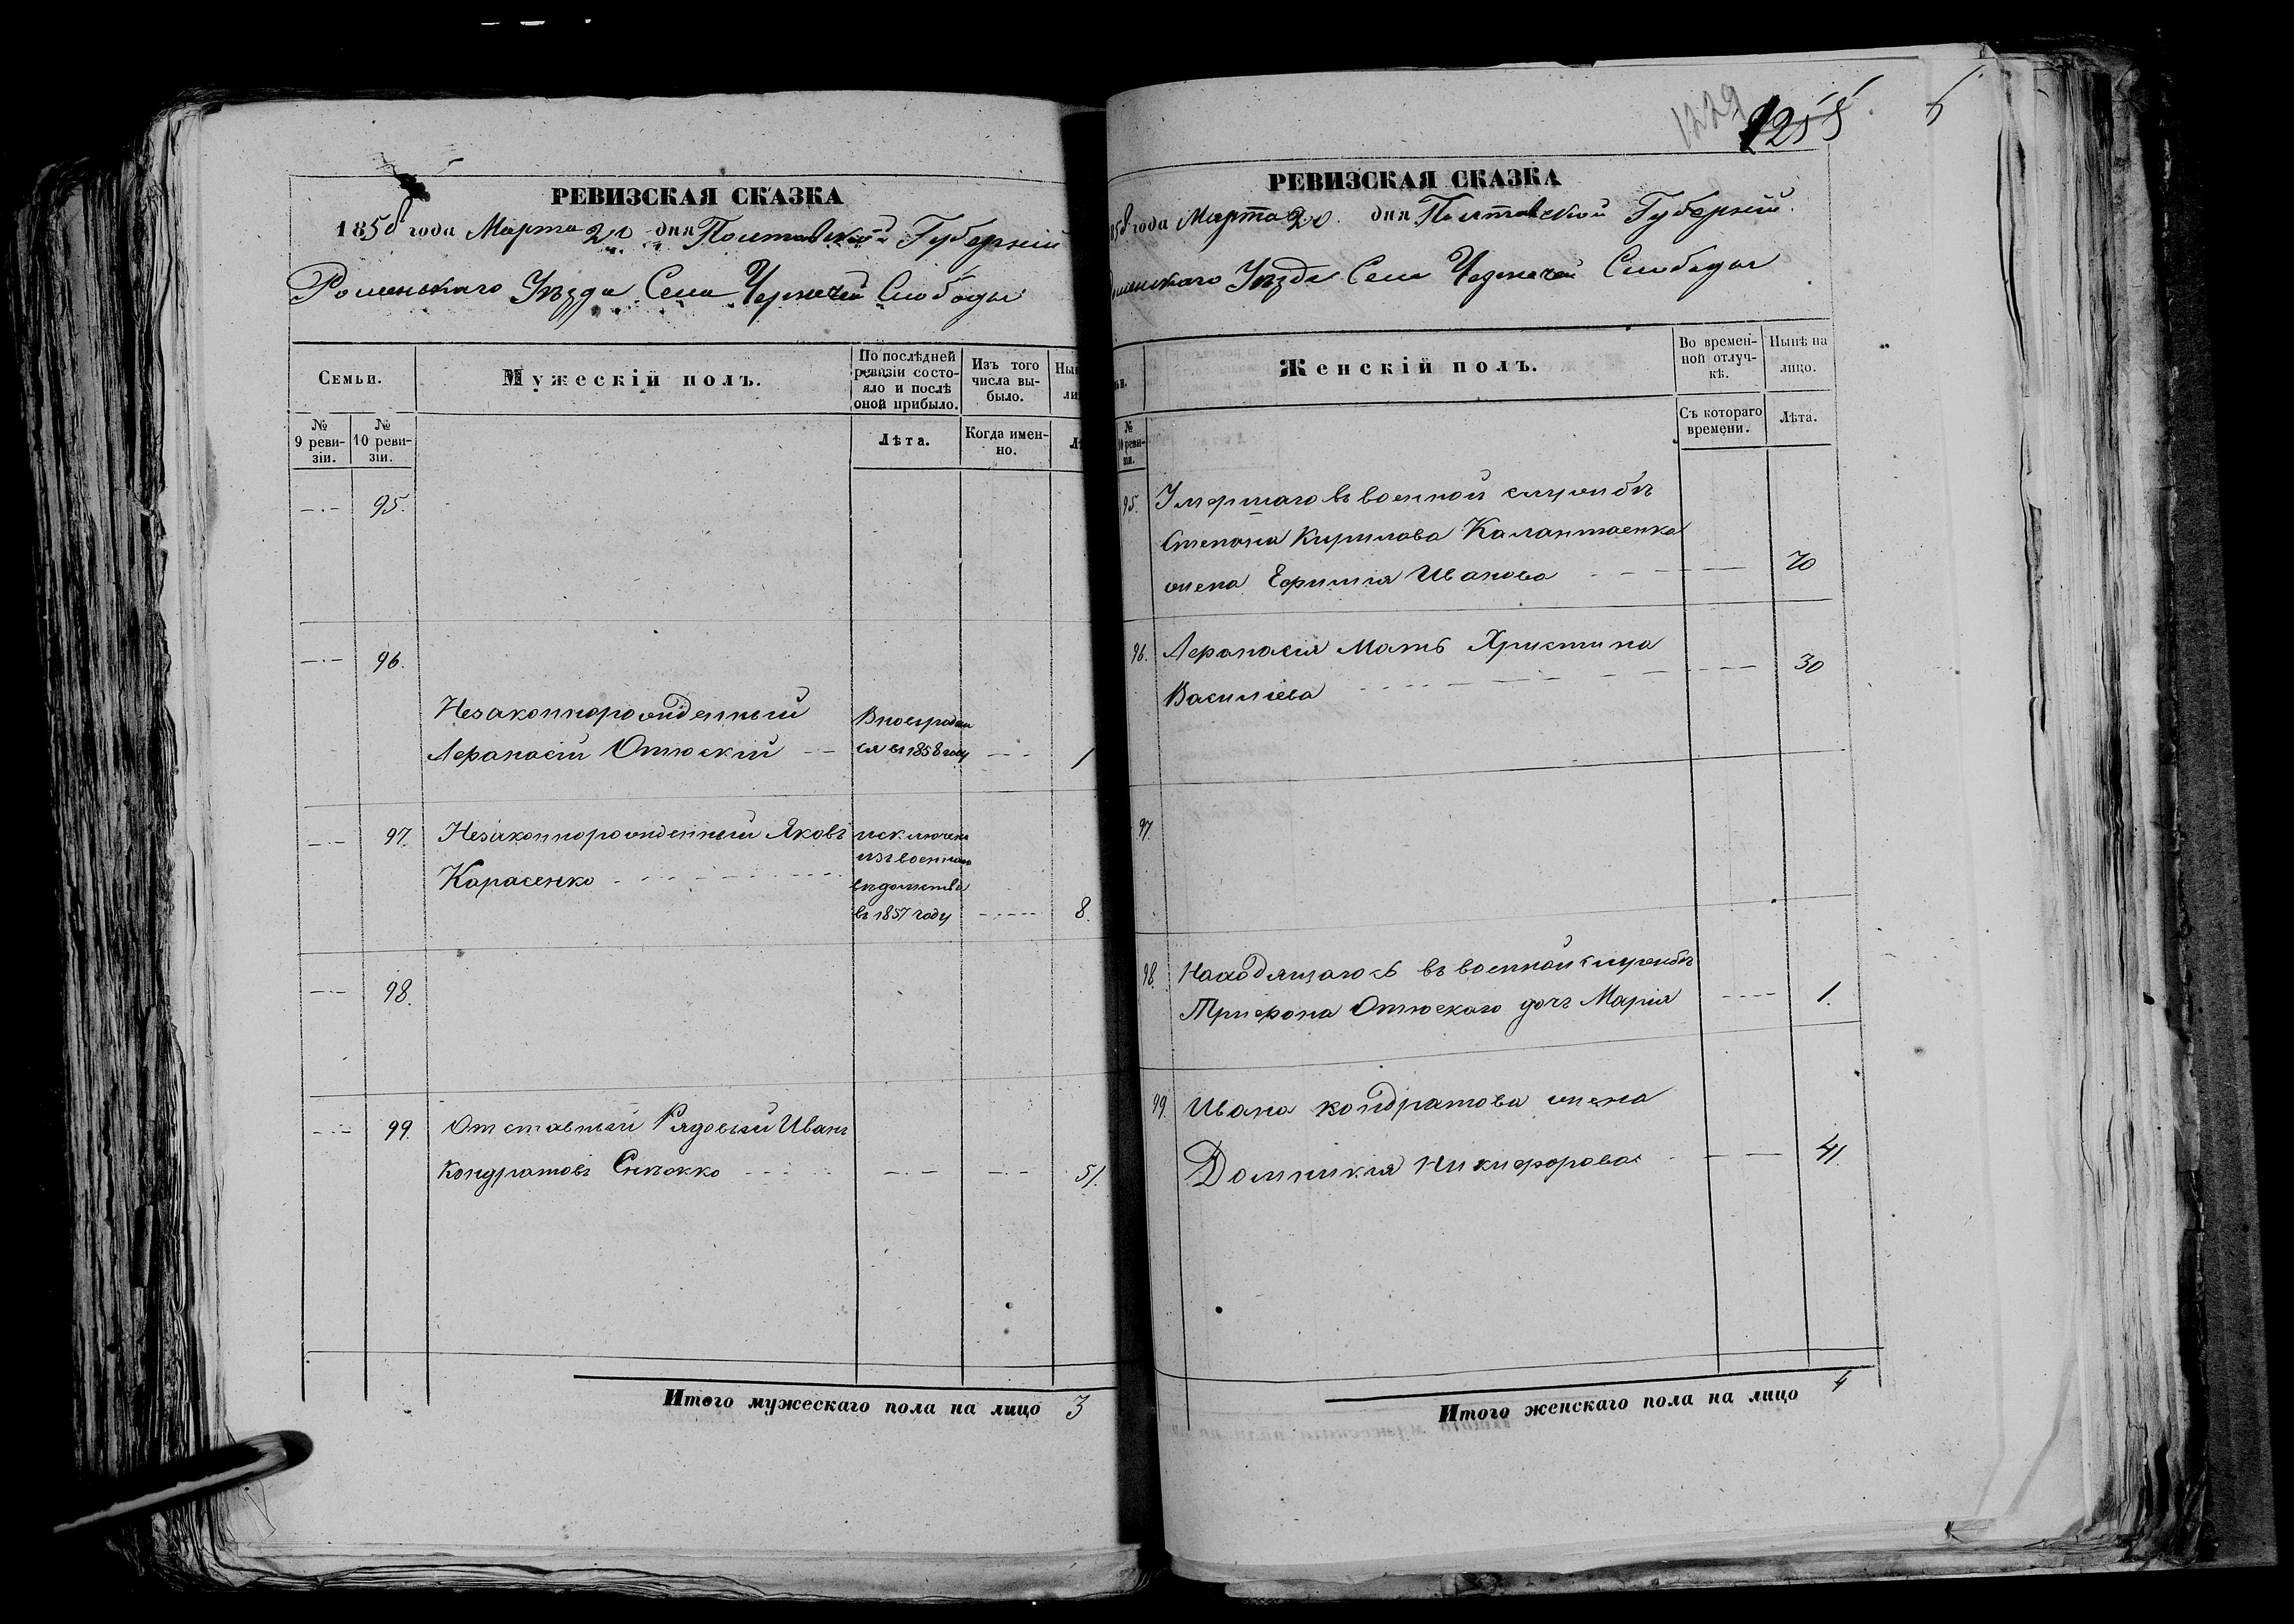 РЕВИЗСКАЯ СКАЗКА
1858 года Марта 20 дня Полтавской Губерніи
Роменьскаго Уѣзда Села Чернечей Слободы
Семьи.
Мужескій полъ.
По послѣдней ревизіи состояло и послѣ оной прибыло.
Изъ того числа выбыло.
№ 9 ревизіи.
№ 10 ревизіи.
Лѣта.
Когда именно.
95.
96.
Незаконнорожденный
Афанасій Отюскій
въ 1858 году
1
97. Незаконнорожденный Яковъ
Карасенко
исключенъ
изъ военнаго
вѣдомства
въ 1857 году
8.
98.
99. Отставный Рядовый Иванъ
Кондратовъ
51.
Итого мужескаго пола на лицо 3
1229
1255
РЕВИЗСКАЯ СКАЗКА
года Марта 20 дня Полтавской Губерніи
Уѣзда Села Чернечей Слободы
Женскій полъ.
Во временной отлучкѣ.
Нынѣ на лицо.
Съ котораго времени.
Лѣта.
95. Умершаго въ военной службѣ
Степана Кирилова Калантаенка
жена Ефимія Иванова 70
96. Афанасія Мать Христина
Василіева 30
97.
98. Находящагось въ военной службѣ
Трифона Отюскаго дочь Марія 1.
99. Ивана Кондратова жена
Домникія Никифорова 41.
Итого женскаго пола на лицо 4